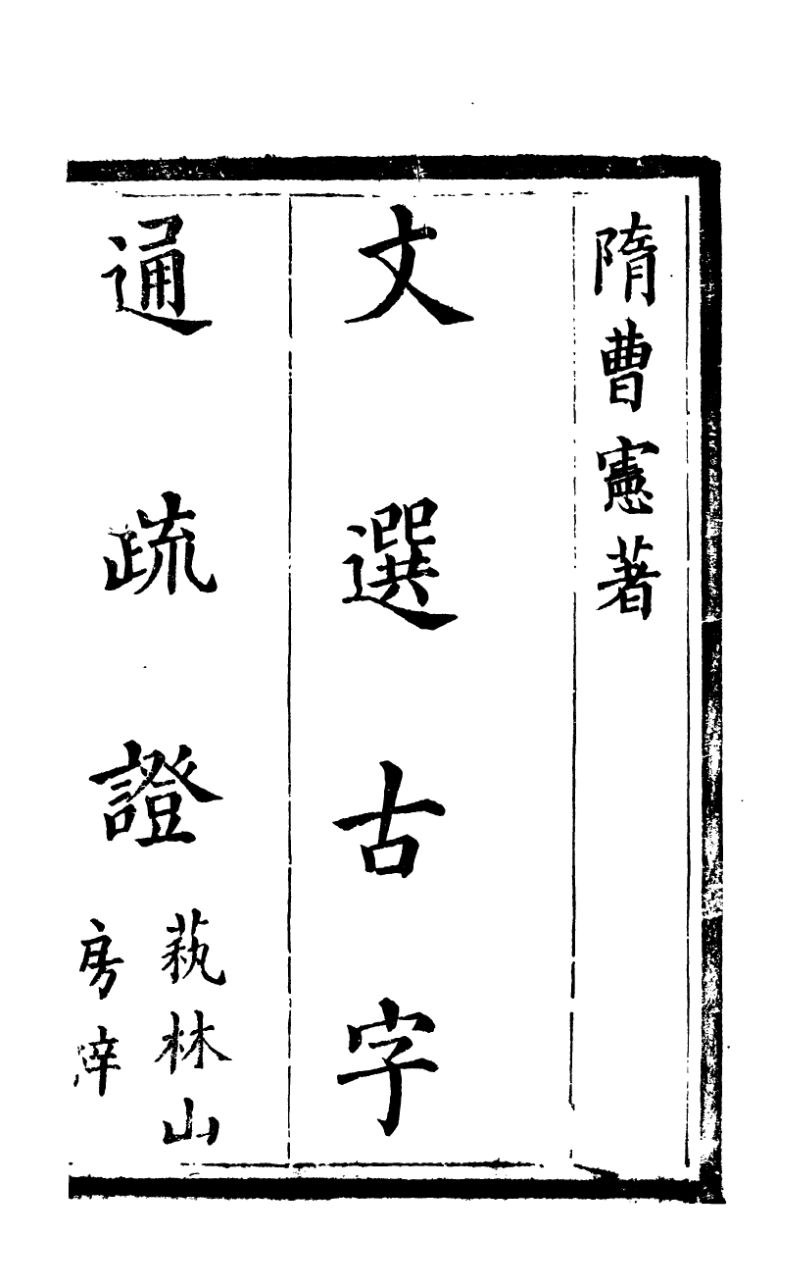 隋曹憲著
文選古字
通疏證
蓺林山
房梓